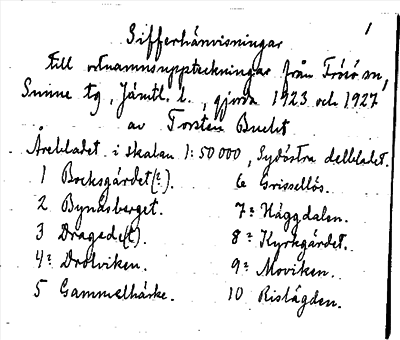 1
Sifferhänvisningar
till ortnamnsuppteckningar från Frösö sn,
Sunne tg, Jämtl. l., gjorda 1923 och 1927
av Torsten Bucht
Årebladet i skalan 1:50 000, Sydöstra delbladet.
1 Bocksgärdet(?).
2 Bynäsberget.
3 Dragede(t).
4: Drolviken.
5 Gammelhärke.
6 Grissellös.
7: Häggdalen.
8: Kyrkgärdet.
9: Moviken.
10 Rislägden.